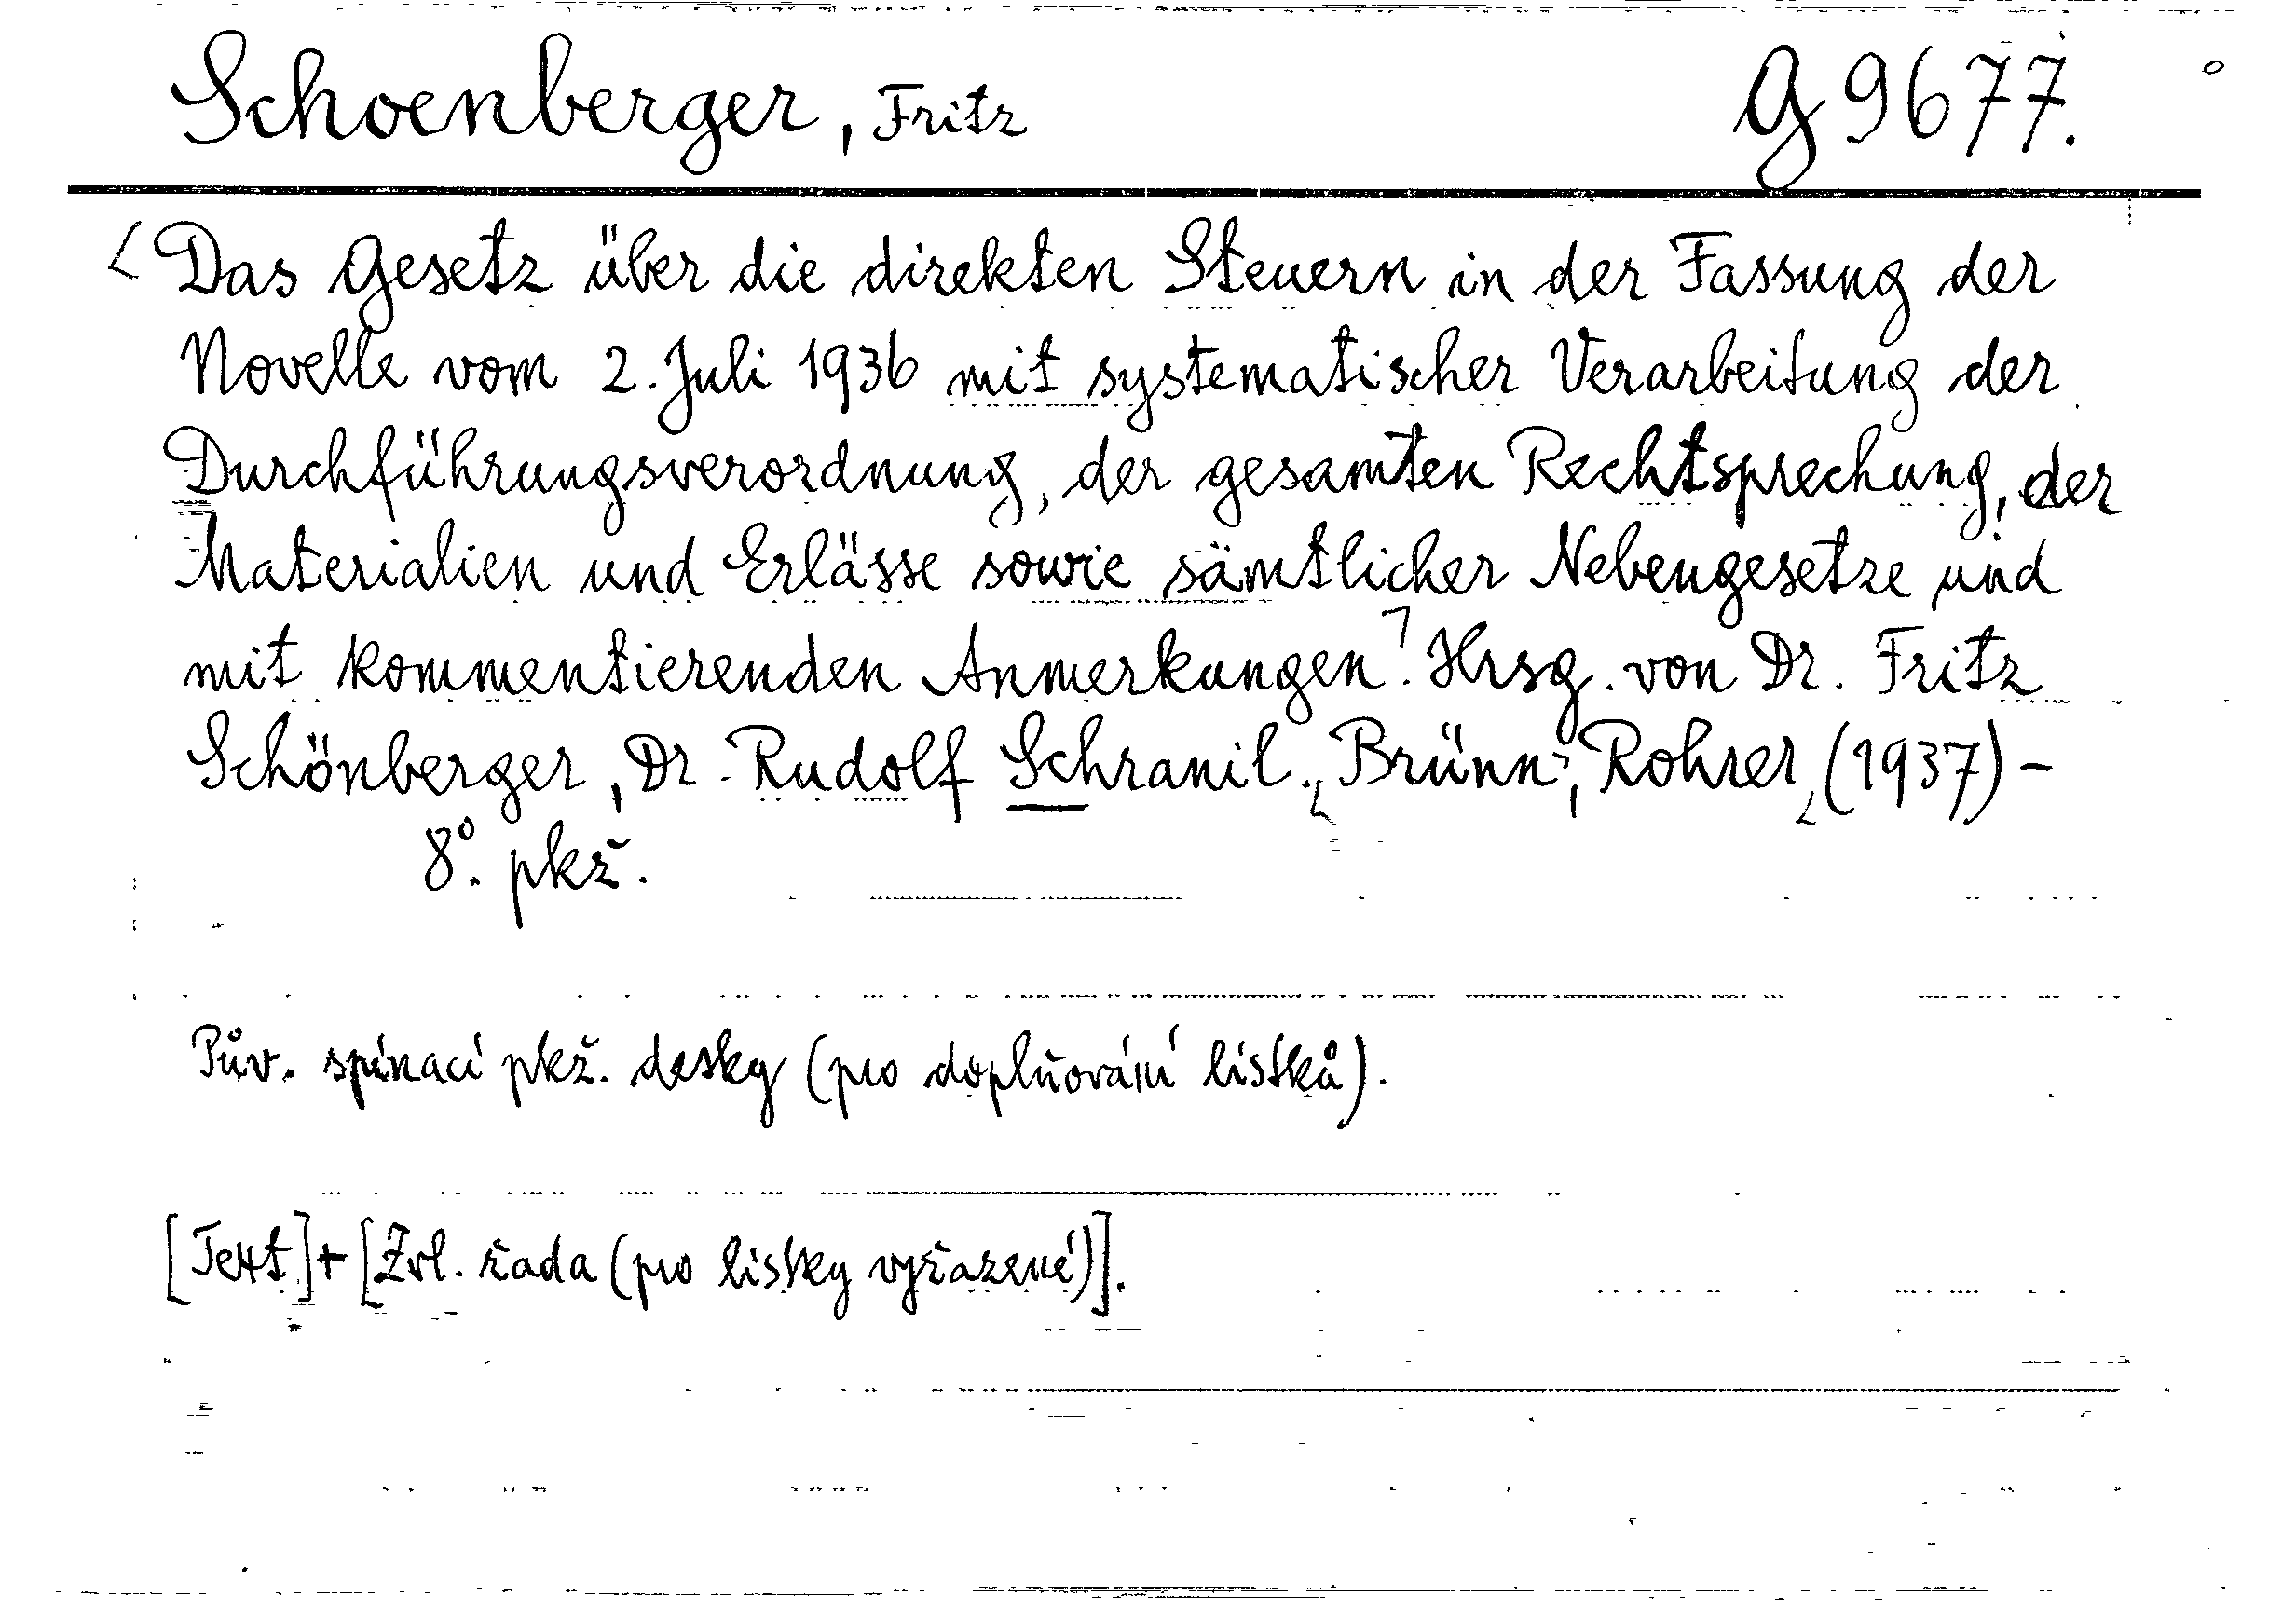 Schoenberger, Fritz G 9677.
Das Gesetz über die direkten Steuern in der Fassung der
Novelle vom 2. Juli 1936 mit systematischer Verarbeitung der
Durchführungsverordnung, der gesamten Rechtsprechung, der
Materialien und Erlässe sowie sämtlicher Nebengesetze und
mit kommentierenden Anmerkungen. Hrsg. von Dr. Fritz
Schönberger, Dr. Rudolf Schranil. Brünn, Rohrer (1937) –
8°. pkž.
Pův. spínací pkž. desky (pro doplňování lístků).
[Text] + [Zvl. řada (pro lístky vyřazené)].